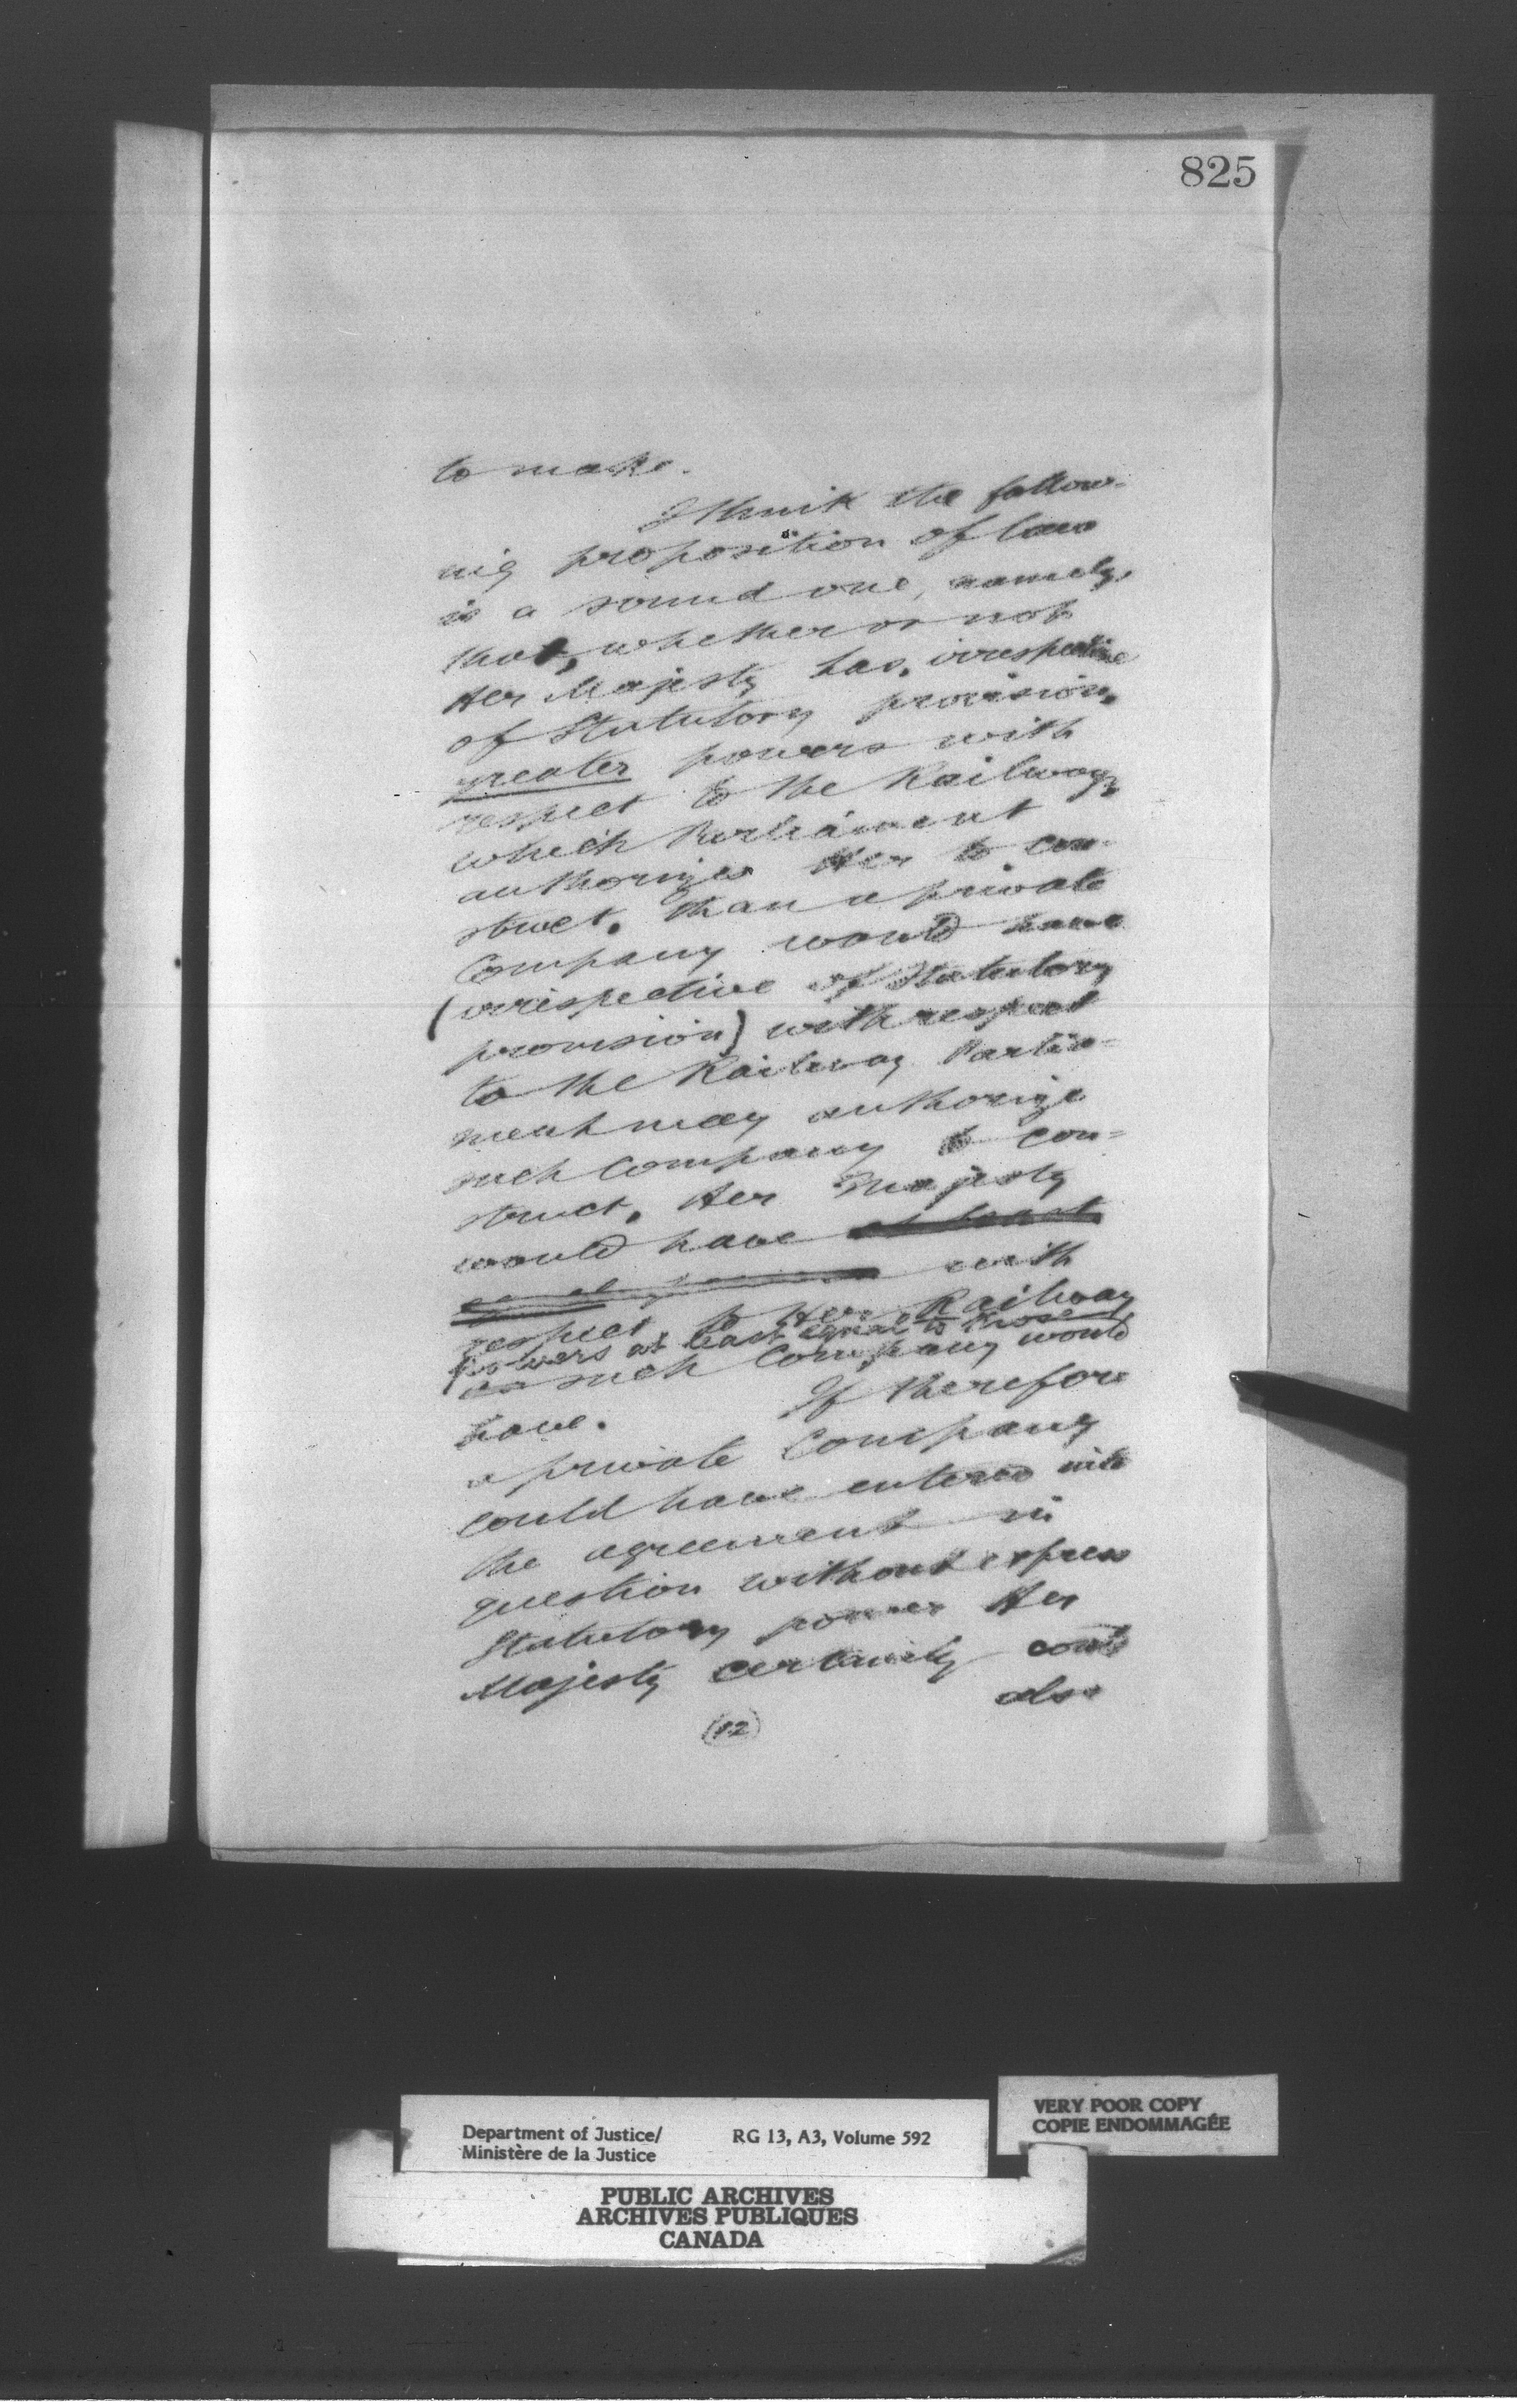 825
to make.
I think the follow-
ing proposition of law
is a sound one, namely,
that, whether or not
Her Majesty has, irrespective
of Statutory provision,
greater powers with
respect to the Railway,
which Parliament
authorizes Her to con-
struct, than a private
Company would have
(irrespective of Statutory
provision) with respect
to the Railway Parlia-
ment may authorize
such Company to con-
struct, Her Majesty
would have at least
equal powers with
respect to Her Railway
powers at least equal to those
as such Company would
have. If therefore
a private Company
could have entered into
the agreement in
question without express
Statutory power Her
Majesty certainly could
also
(12)
Department of Justice/
Ministère de la Justice
RG 13, A3, Volume 592
VERY POOR COPY
COPIE ENDOMMAGÉE
PUBLIC ARCHIVES
ARCHIVES PUBLIQUES
CANADA